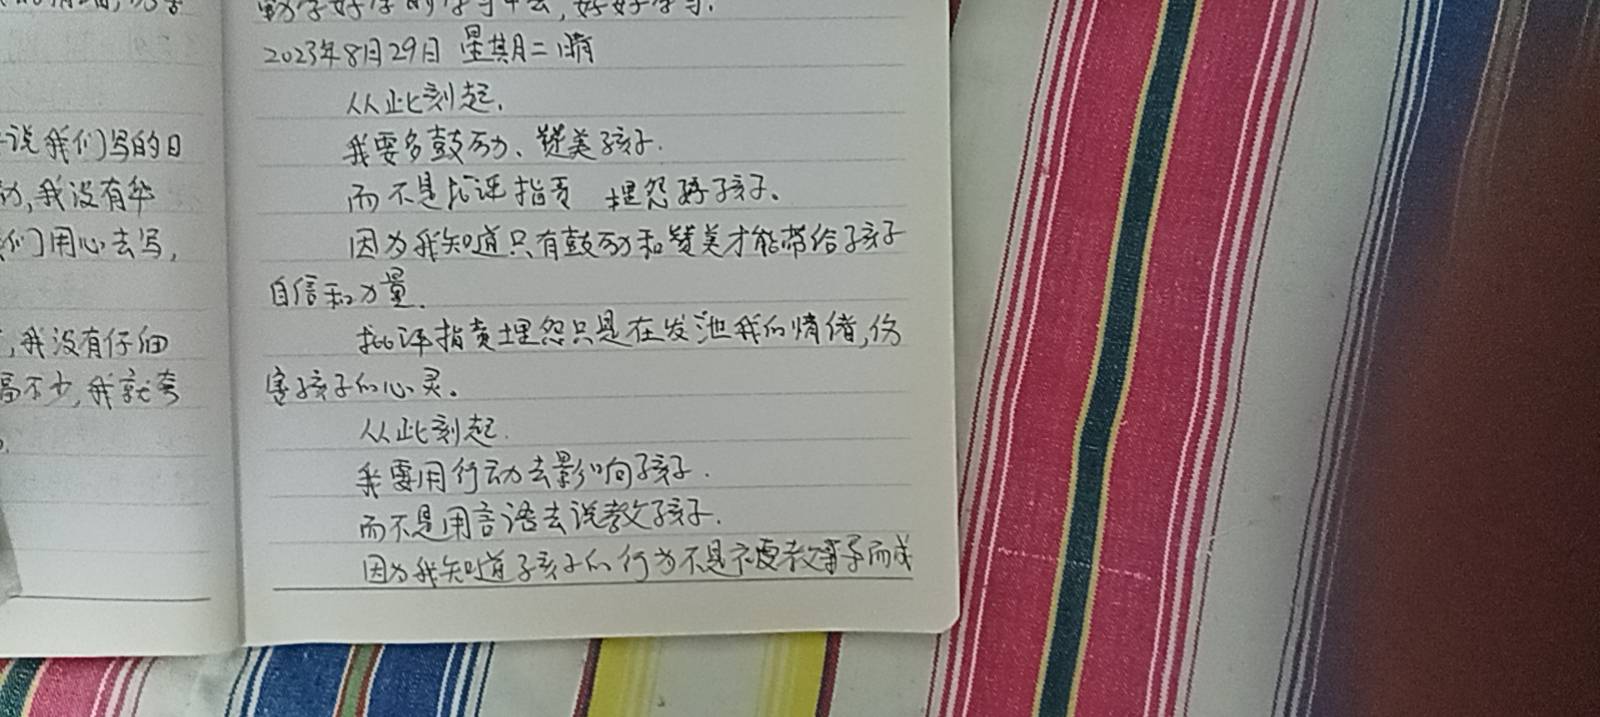 说我们写的日
,我没有华
们用心去写,
,我没有仔细
不少,我就夸
勤学好学的学习中去,好好学习.
2023年8月29日 星期二 晴
从此刻起,
我要多鼓励、赞美孩子.
而不是批评指责 埋怨孩子。
因为我知道只有鼓励和赞美才能带给孩子
自信和力量.
批评指责埋怨只是在发泄我的情绪,伤
害孩子的心灵。
从此刻起.
我要用行动去影响孩子.
而不是用言语去说教孩子.
因为我知道孩子的行为不是被教导而成